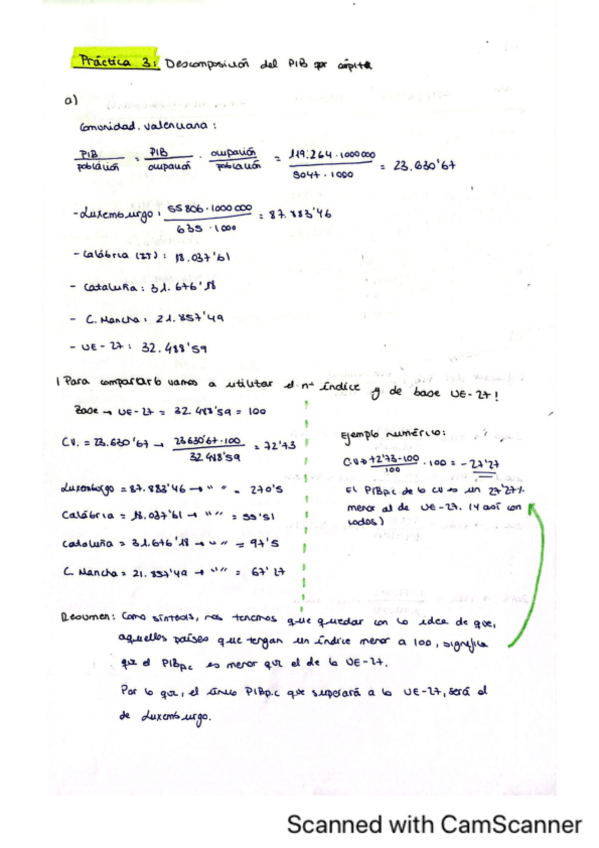 Práctica 3: Descomposición del PIB per cápita
a)
Comunidad valenciana:
PIB/población = PIB/ocupación · ocupación/población = 119.264·1000000/5047·1000 = 23.630'67
- Luxemburgo: 55806·1000000/635·1000 = 87.883'46
- Calábria (IT): 18.037'61
- Cataluña: 31.676'18
- C. Mancha: 21.857'49
- UE-27: 32.488'59
! Para compararlo vamos a utilizar el nº índice y de base UE-27!
Base → UE-27 = 32.488'59 = 100
CV. = 23.630'67 → 23630'67·100/32.488'59 = 72'73
Luxemburgo = 87.883'46 → " " = 270'5
Calábria = 18.037'61 → " " = 55'51
Cataluña = 31.676'18 → " " = 97'5
C. Mancha = 21.857'49 → " " = 67'27
Ejemplo numérico:
CV → 72'73-100/100 · 100 = -27'27
El PIBp.c de la CV es un 27'27%
menor al de UE-27. (y así con
todos)
Resumen: Como síntesis, nos tenemos que quedar con la idea de que,
aquellos países que tengan un índice menor a 100, significa
que el PIBp.c es menor que el de la UE-27.
Por lo que, el único PIBp.c que superará a la UE-27, será el
de Luxemburgo.
Scanned with CamScanner